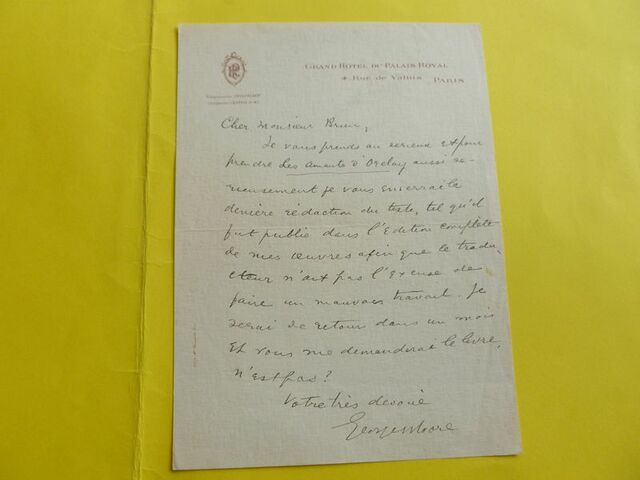 GRAND HÔTEL DU PALAIS ROYAL
4 RUE DE VALOIS PARIS
Cher Monsieur Brun,
Je vous prends au serieux et pour
prendre Les Amants d'Orelay aussi se-
rieusement je vous enverrai la
dernière rédaction du texte, tel qu'il
fut publié dans l'Edition complete
de mes œuvres afin que le traduc-
cteur n'ait pas l'excuse de
faire un mauvais travail. Je
serai de retour dans un mois
et vous me demanderai le livre,
n'est pas?
Votre très devoué
George Moore